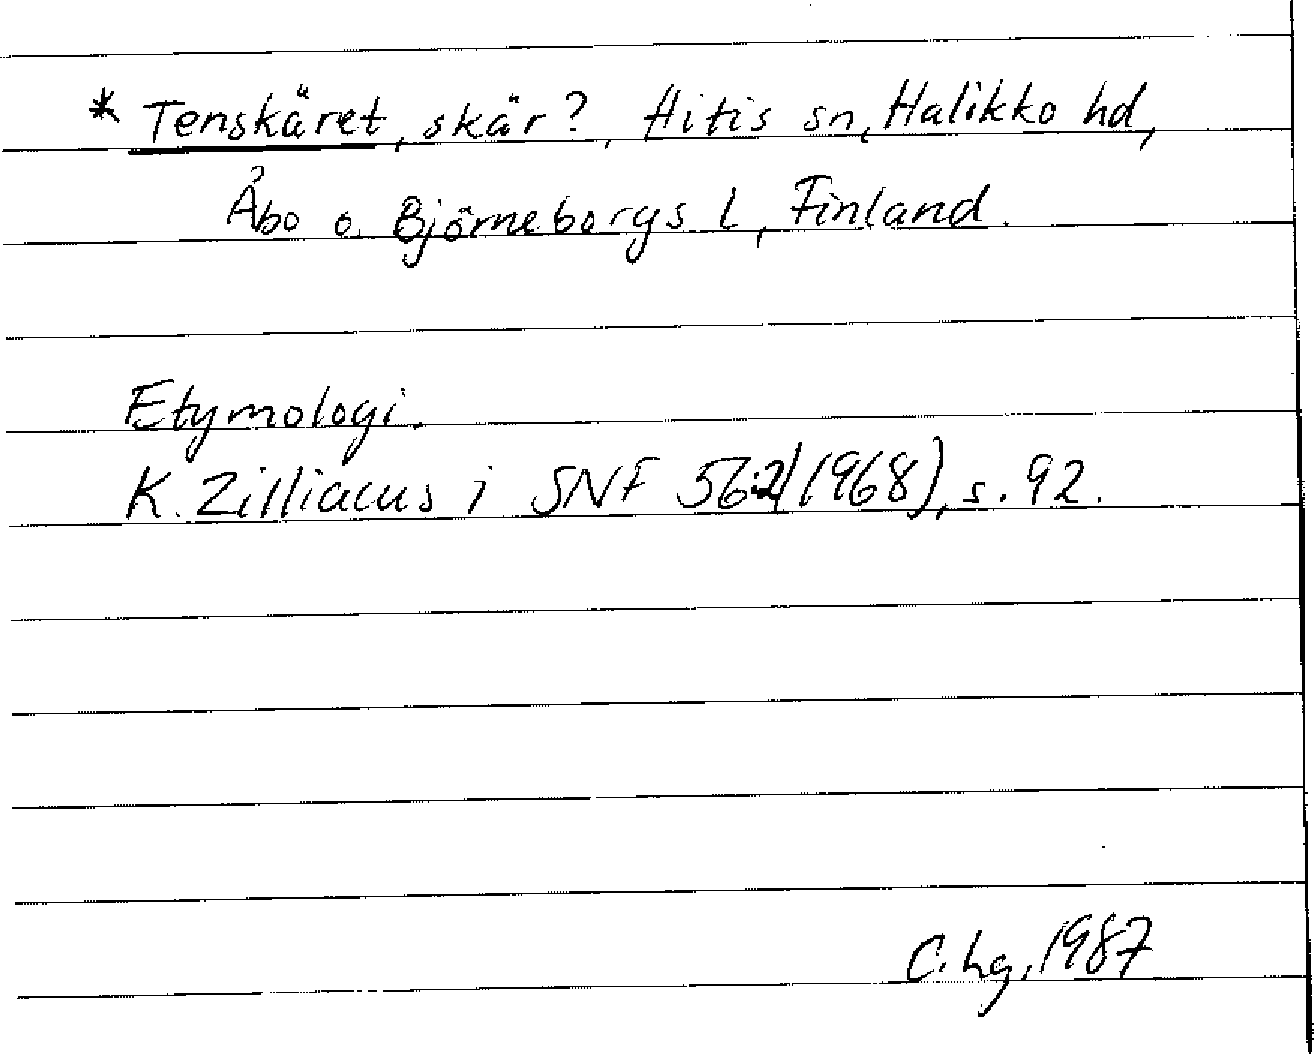 * Tenskäret, skär?, Hitis sn, Halikko hd,
Åbo o. Björneborgs l, Finland.
Etymologi.
K. Zilliacus i SNF 56:2 (1968), s. 92.
C. hg, 1987